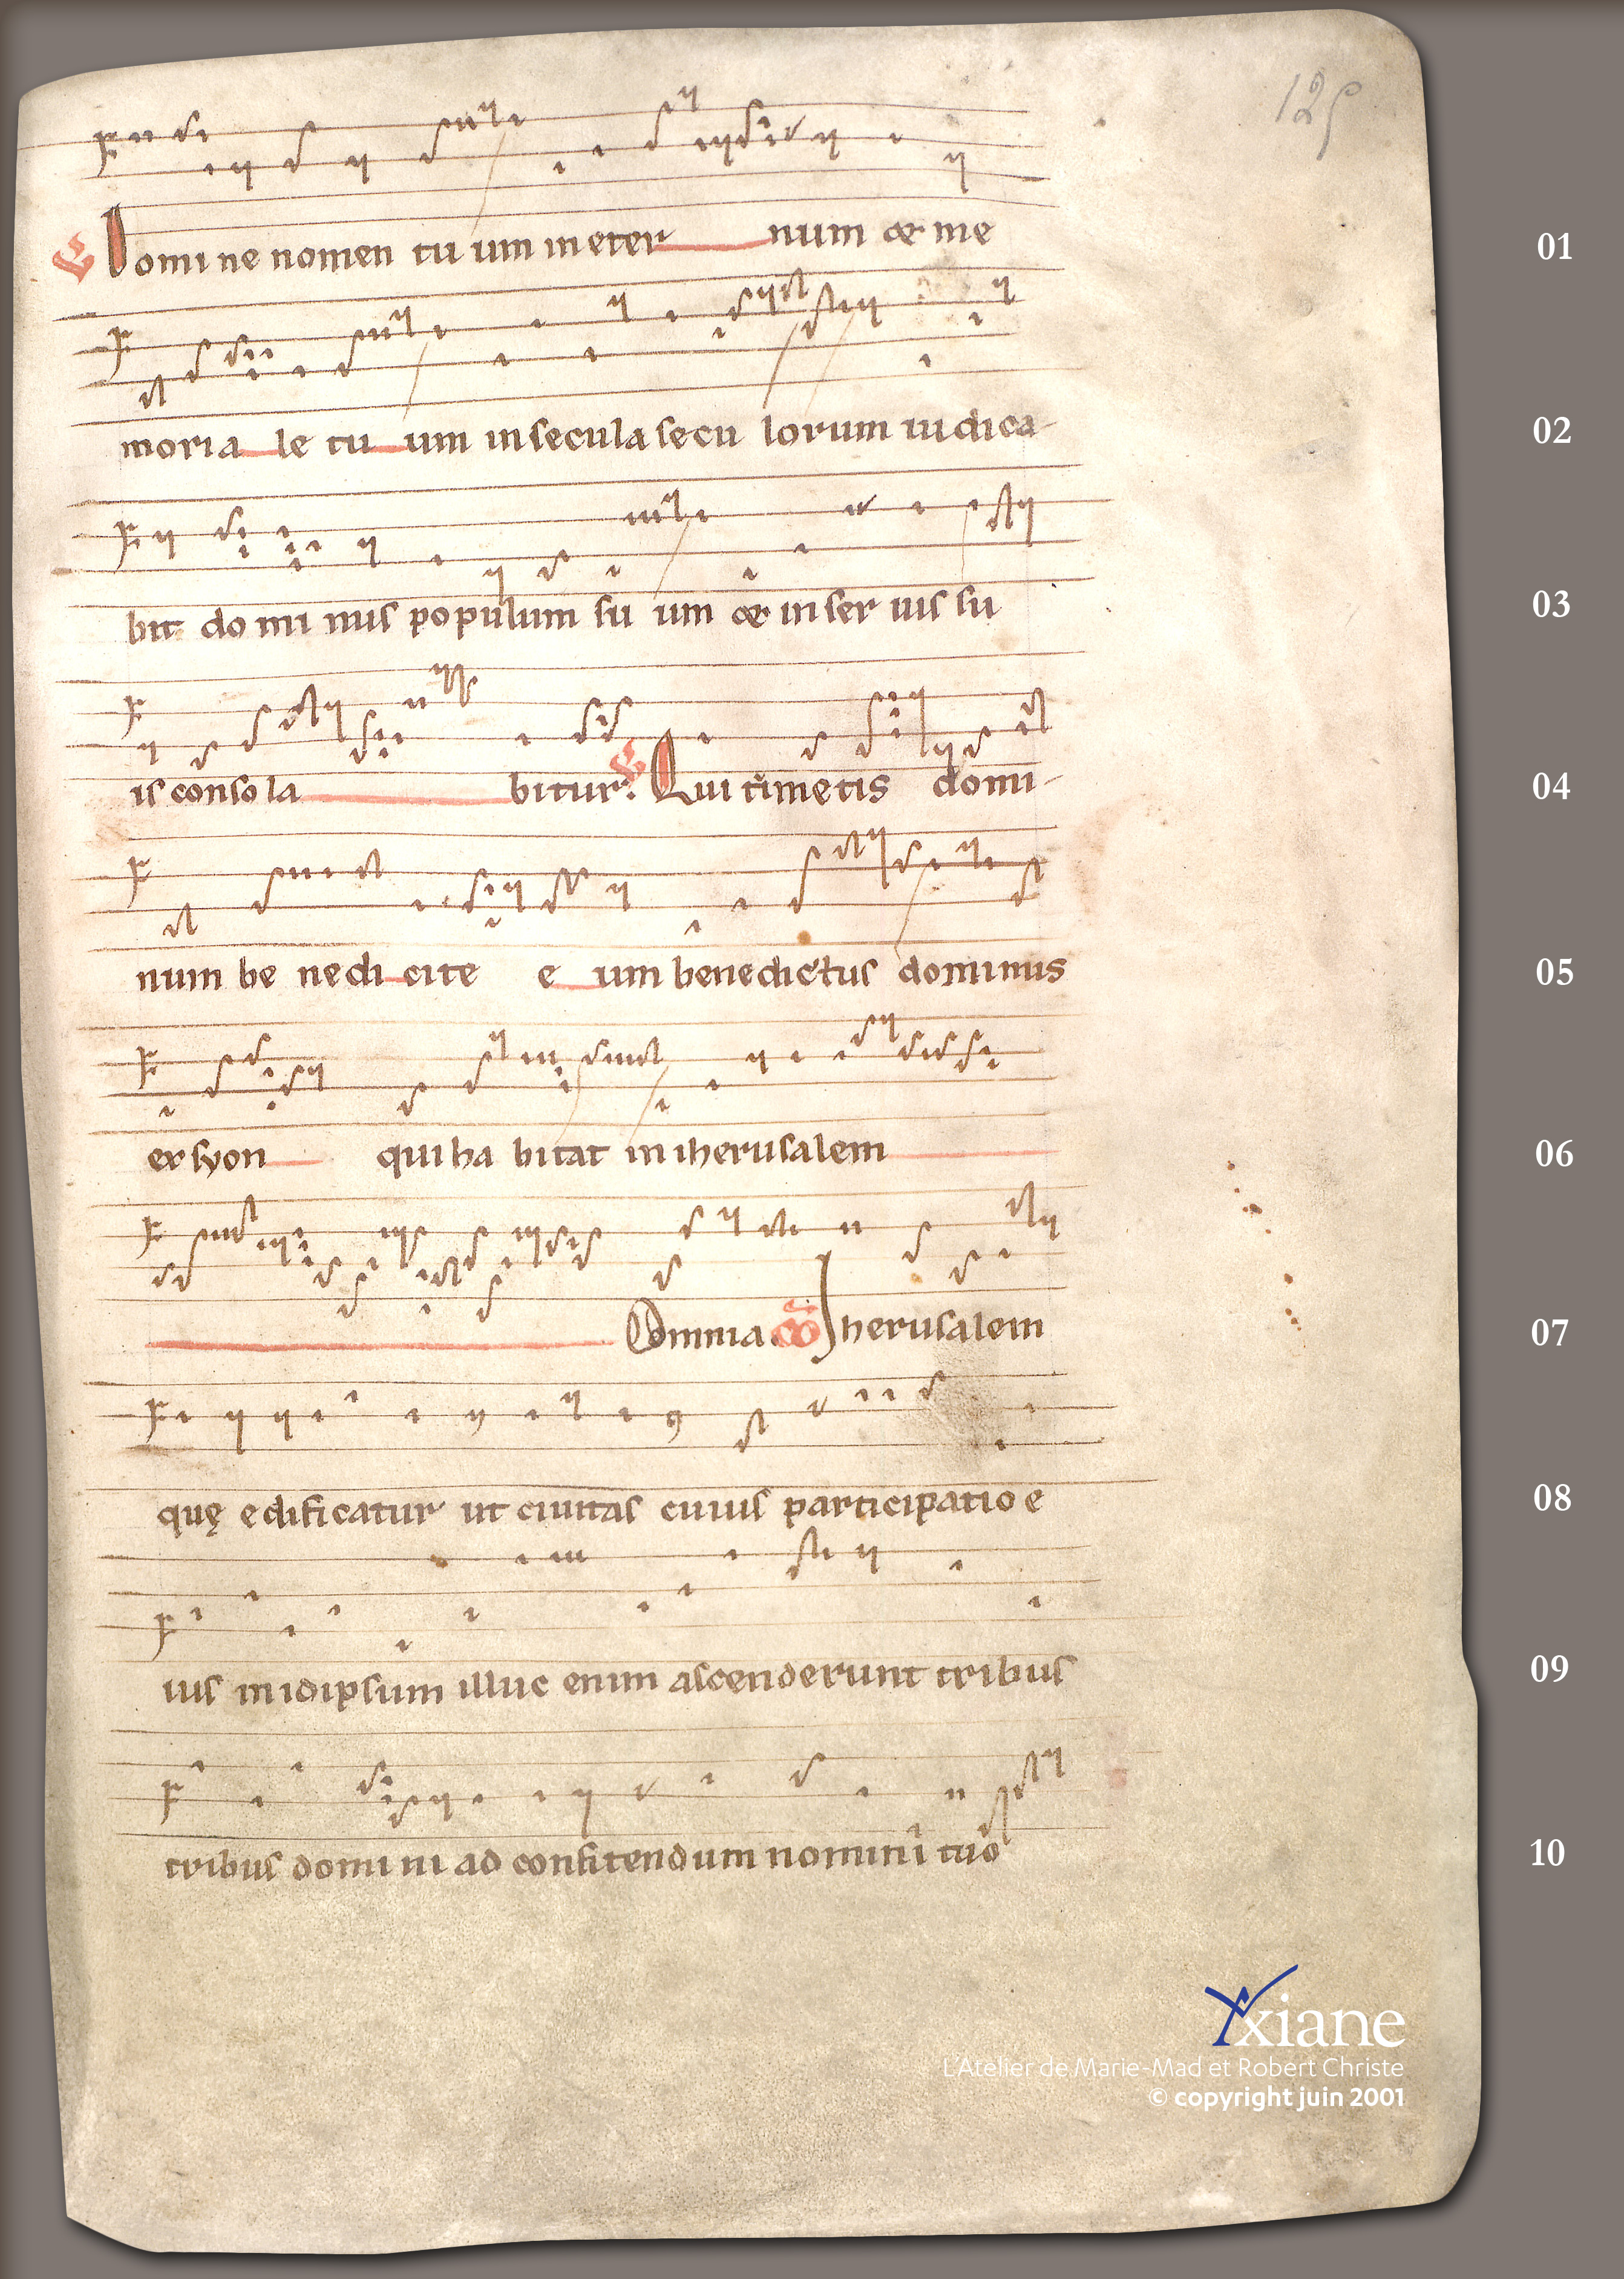 125
Domine nomen tu um in eter num & me 01
moria le tu um in secula secu lorum iudica- 02
bit do mi nus populum su um & in ser uis su 03
is conso la bitur. Qui timetis domi- 04
num be nedi cite e um benedictus dominus 05
ex syon qui ha bitat in iherusalem 06
Omnia. Iherusalem 07
quę edificatur ut ciuitas cuius participatio e 08
ius in idipsum illuc enim ascenderunt tribus 09
tribus domi ni ad confitendum nomini tuo 10
xiane
L'Atelier de Marie-Mad et Robert Christe
© copyright juin 2001